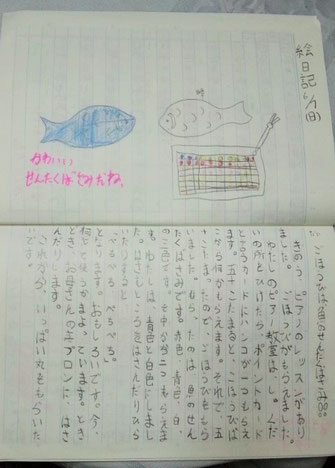 絵日記
(日)
かわいい
せんたくばさみだね。
ごほうびは魚のせんたくばさみ
きのう、ピアノのレッスンがあり
ました。ごほうびがもらえました。
わたしのピアノ教室は、しゅくだ
いの所をひけたら、ポイントカード
カードにハンコが一つもらえ
ます。五十こたまると、ごほうびば
こから何かもらえます。それで、五
十こたまったので、ごほうびをもら
いました。もらったのは魚のせん
たくばさみです。赤色、青色、白
の三色です。その中から二つもらえま
す。わたしは、青色と白色にしまし
た。はさむところをはさんだりひら
いたりすると
となります。おもしろいです。今、
何につかうかまよっています。とき
どき、お母さんのエプロンに、はさ
んだりします。
これから、いっぱい丸をもらいた
いです。